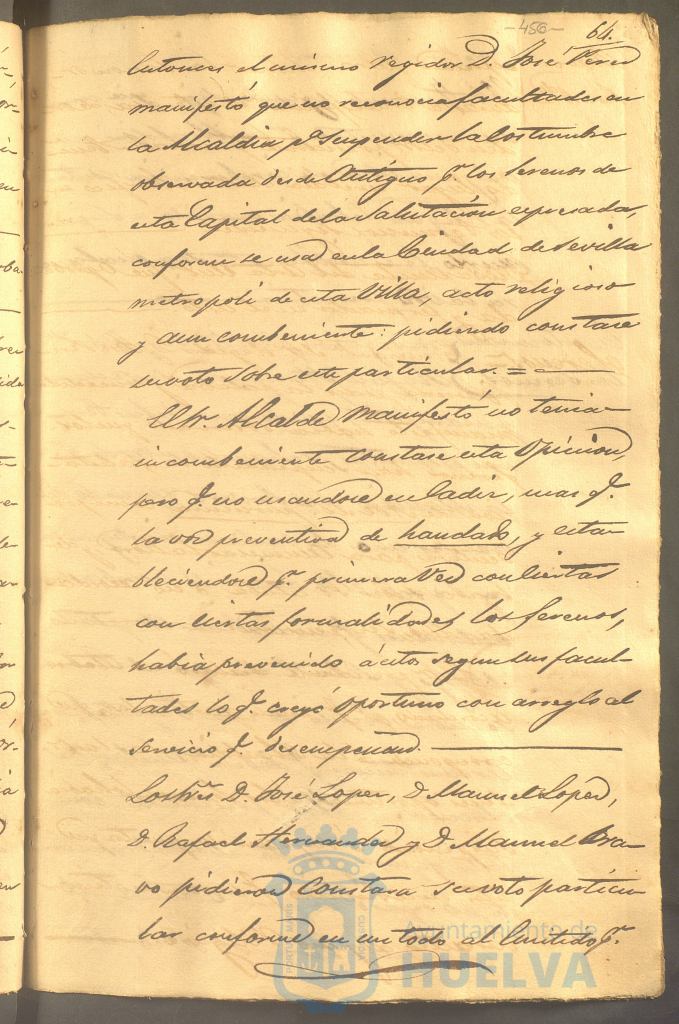 -456-
64.
Entonces el mismo regidor D. José Perez
manifestó que no reconocia facultades en
la Alcaldia pª suspender la Costumbre
observada desde Antiguo pr. los serenos de
esta Capital de la Salutación expresada,
conforme se usa en la Ciudad de Sevilla
metropoli de esta Villa, acto religioso
y aun combeniente: pidiendo constase
su voto sobre este particular. =
El Sr. Alcalde manifestó no tenia
incombeniente Constase esta Opinion,
pero q. no usandose en Cadiz, mas q.
la voz preventiva de handado, y esta-
bleciendose pr. primera Vez con ciertas
con ciertas formalidades los serenos,
habia prevenido á estos segun sus facul-
tades lo q. creyó oportuno con arreglo al
servicio q. desempeñan.
Los Sres. D. José Lopez, D Manuel Lopez,
D. Rafael Hernandez y D Manuel Bra-
vo pidieron Constara su voto particu-
lar conforme en un todo al Emitido pr.
Ayuntamiento de
HUELVA